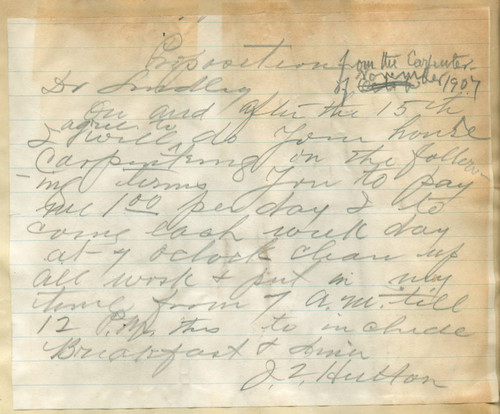 Proposition from the Carpenter
Dr Lindley of November 1907
On and after the 15th
I agree to will do your house
Carpentering on the follow-
ing terms You to pay
me 1.00 per day I to
come each week day
at 7 oclock clean up
all work & put in my
time from 7 A.M. till
12 P.M. this to include
Breakfast & diner
J. Z. Hutton